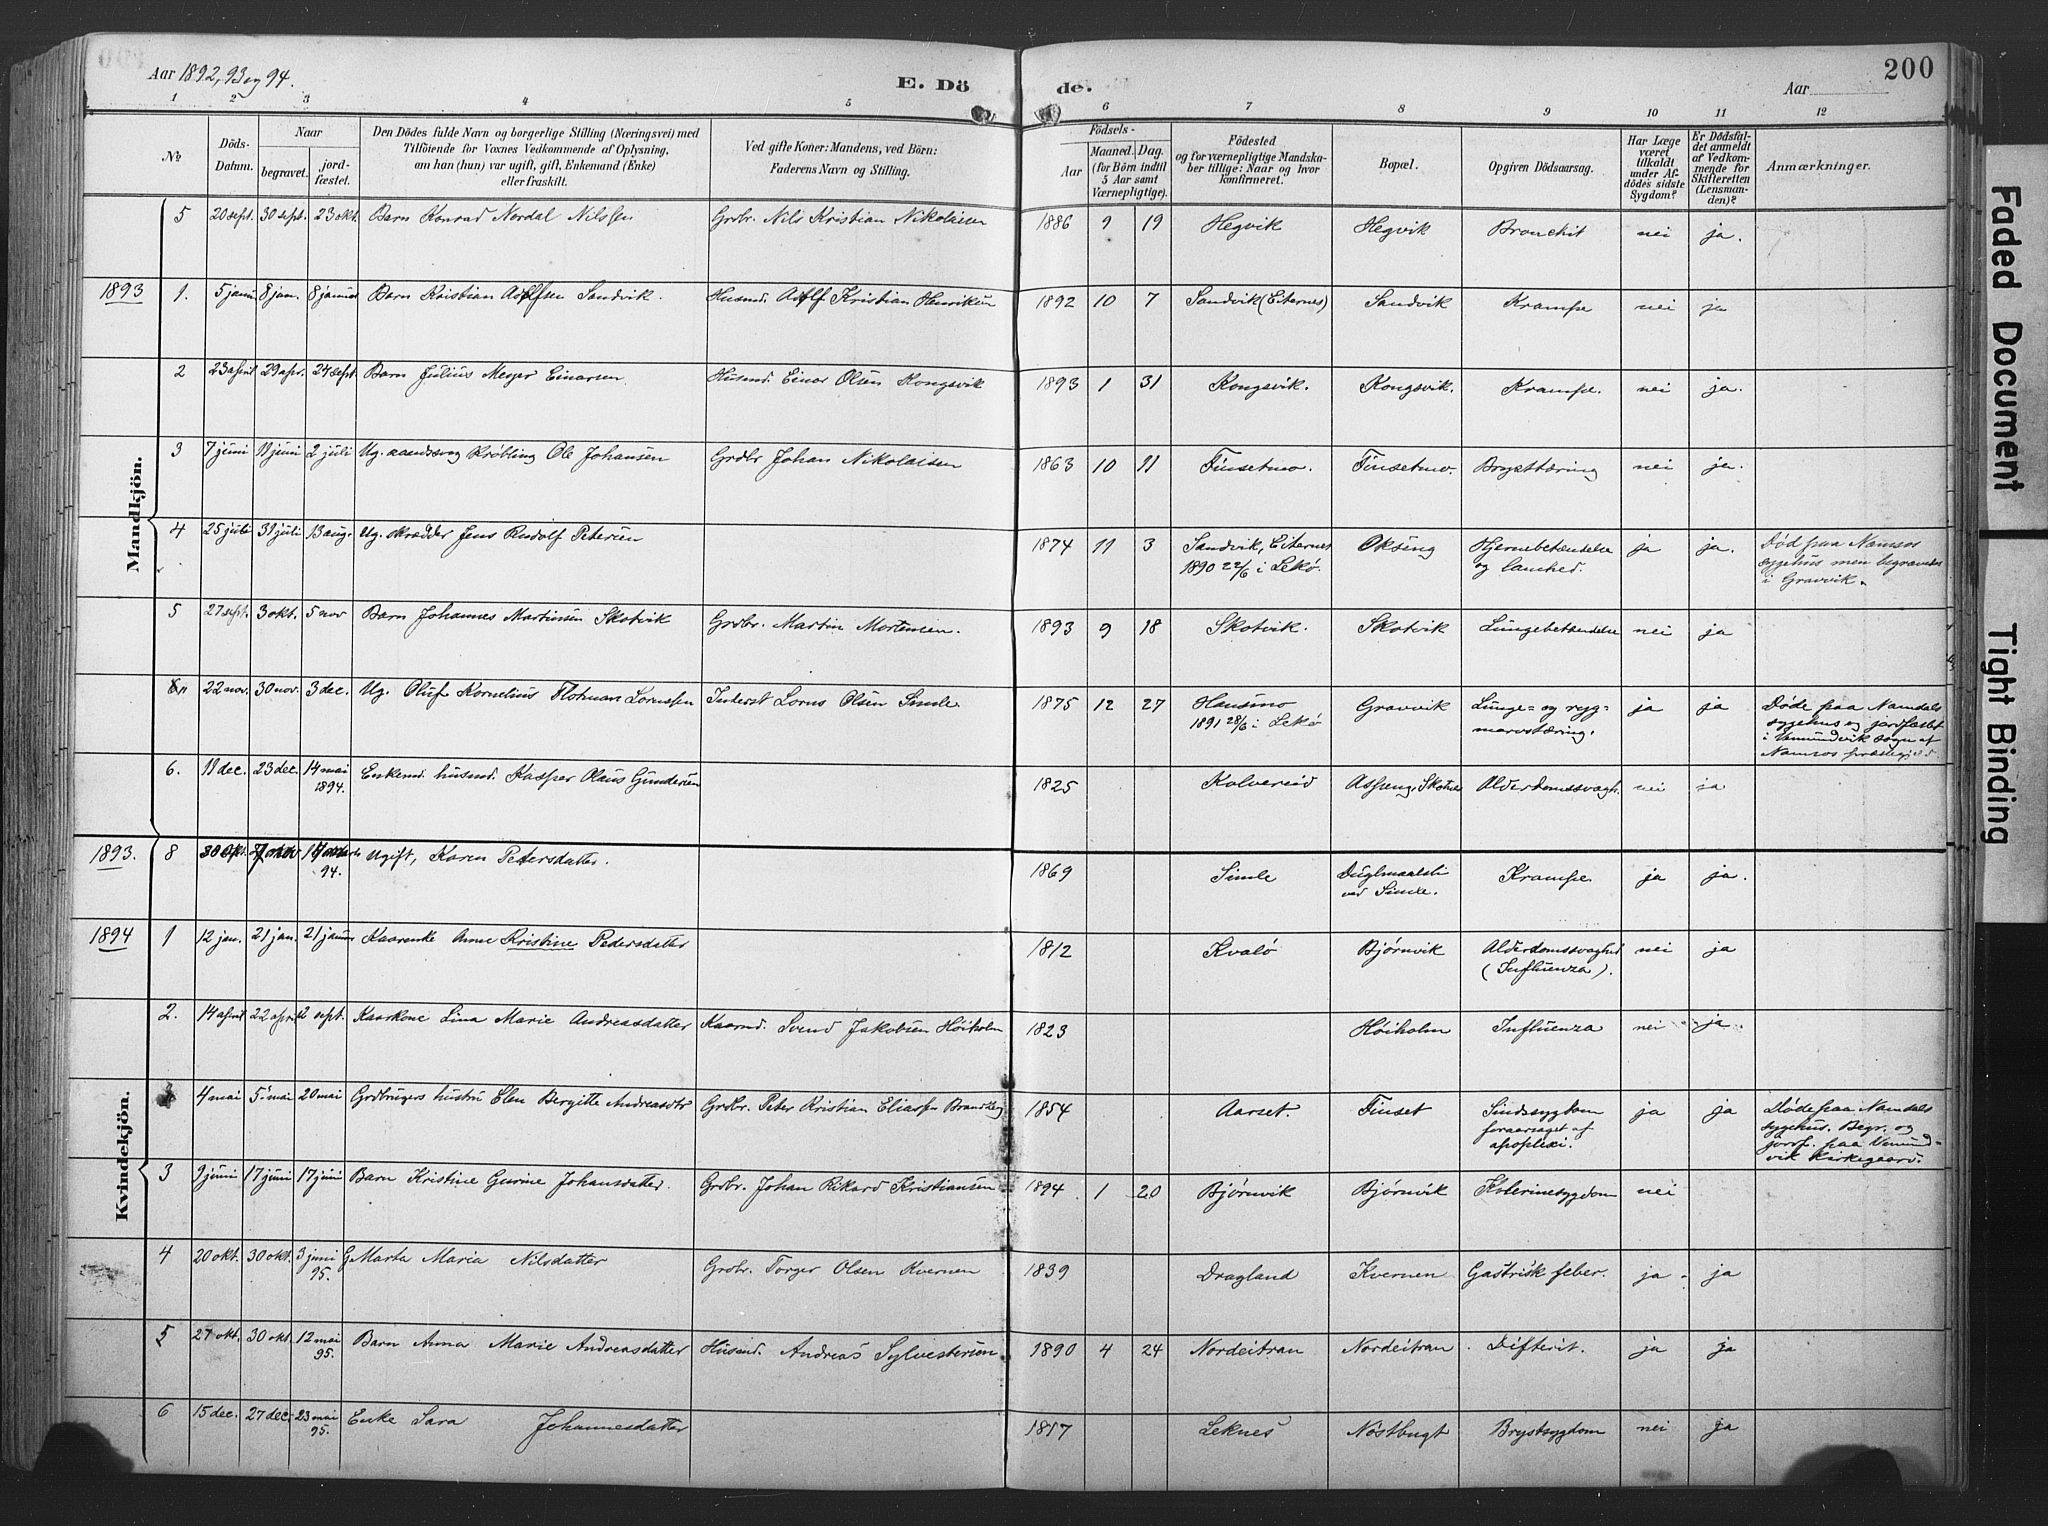 Aar 1892, 93 og 94.
E. Dö
de.
Aar
200
1 2 3 4 5 6 7 8 9 10 11 12
No
Döds-Datum.
Naar
begravet.
jordfæstet.
Den Dödes fulde Navn og borgerlige Stilling (Næringsvei) med
Tilföiende for Voxnes Vedkommende af Oplysning,
om han (hun) var ugift, gift, Enkemand (Enke)
eller fraskilt.
Ved gifte Koner: Mandens, ved Börn:
Faderens Navn og Stilling.
Födsels-
Aar
Maaned. Dag.
(for Börn indtil
5 Aar samt
Værnepligtige).
Födested
og for værnepligtige Mandska-
ber tillige: Naar og hvor
konfirmeret.
Bopæl.
Opgiven Dödsaarsag.
Har Læge
været
tilkaldt
under Af-
dödes sidste
Sygdom?
Er Dödsfal-
det anmeldt
af Vedkom-
mende for
Skifteretten
(Lensman-
den)?
Anmærkninger.
Mandkjön.
5 20 sept. 30 sept. 23 okt. Barn Konrad Nordal Nilssen Grdbr. Nils Kristian Nikolaisen 1886 9 19 Hegvik Hegvik Bronchit nei ja.
1893 1. 5 8 jan. 8 Barn Kristian Sandvik. Husmd. Kristian Henriksen 1892 10 7 Sandvik (Eiternes) Sandvik Krampe nei ja
2 23 april 29 apr. 24 sept. Barn Julius Meyer Einarsen. Husmd. Einar Olsen Kongsvik 1893 1 31 Kongsvik. Kongsvik. Krampe. nei ja.
3 7 juni 11 juni 2 juli Ug. Ole Johansen Grdbr Johan Nikolaisen 1863 10 11 Finsetmo. Finsetmo. Brysttæring nei ja.
4 25 juli 31 juli 13 aug. Ug. skrædder Jens Rudolf Petersen 1874 11 3 Sandvik, Eiternes
1890 22/6 i Lekø. Okseng Hjernebetændelse
og ja ja. Død paa Namsos
sygehus men begravedes
i Gravvik.
5 27 sept. 3 okt. 5 nov Barn Johannes Martinsen Skotvik Grdbr. Martin Mortensen. 1893 9 18 Skotvik. Skotvik Lungebetændelse nei ja
22 nov. 30 nov. 3 dec. Ug. Oluf Kornelius Lornssen Lorns Olsen Simle. 1875 12 27 Hansmo
1891 28/6 i Lekø Gravvik Lunge- og ryg-
marvstæring. ja ja Døde paa Namdals
sygehus og jordfæstet
i Vemundvik sogn af
Namsos præstegjeld
6. 11 dec. 23 dec. 14 mai
1894. Enkemd. husmd. Kasper Olaus Gundersen 1825 Kolvereid Aspeng, Alderdomssvagh. nei ja
1893. 8
94. Ugift, Karen Petersdatter. 1869 Simle
ved Simle. Krampe ja ja.
Kvindekjön.
1894 1 12 jan. 21 jan. 21 Kaarenke Anne Kristine Pedersdatter 1812 Kvalø Bjørnvik Alderdomssvaghed
(Influenza). nei ja
2. 14 april 22 april 2 sept. Kaarkone Lina Marie Andreasdatter Kaarmd. Svend Jakobsen Høiholm 1823 Høiholm Influenza nei ja
4 mai 5 mai 20 mai Grdbrugers hustru Elen Bergitte Andreasdtr Grdbr. Peter Kristian Eliassen 1854 Aarset. Finset Sindssygdom
foraarsaget af
apoplexi. ja ja Døde paa Namdals
sygehus. Begr. og
jordf. paa Vemund-
vik Kirkegaard.
3 9 juni 17 juni 17 juni Barn Kristine Gurine Johansdatter. Grdbr. Johan Rikard Kristiansen 1894. 1 20 Bjørnvik Bjørnvik Kolerinesygdom nei
4 20 okt. 30 okt. 3 juni
95. G. Marta Maria Nilsdatter Grdbr. Torger Olsen Kvernen 1839 Dragland Kvernen Gastrisk feber. ja ja
5 27 okt. 30 okt. 12 mai
95. Barn Anna Marie Andreasdatter Husmd. Andreas Sylvestersen 1890 4 24 Nordeitran Nordeitran Difterit. ja ja
6 15 dec. 27 dec. 23 mai
95. Enke Sara Johannesdatter 1817 Leknes Nøstbugt Brystsygdom nei ja
Faded Document
Tight Binding